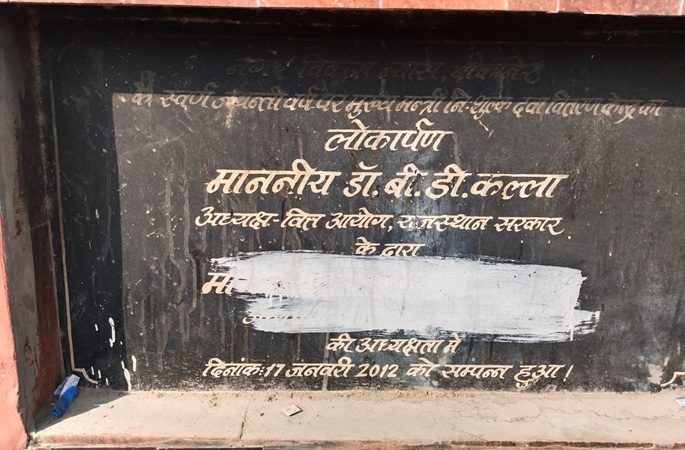 नगर विकास न्यास, बीकानेर
के स्वर्ण जयन्ती वर्ष पर मुख्य मन्त्री निःशुल्क दवा वितरण केन्द्र का
लोकार्पण
माननीय डॉ. बी. डी. कल्ला
अध्यक्ष-वित्त आयोग, राजस्थान सरकार
के द्वारा
की अध्यक्षता में
दिनांकः 17 जनवरी 2012 को सम्पन्न हुआ।